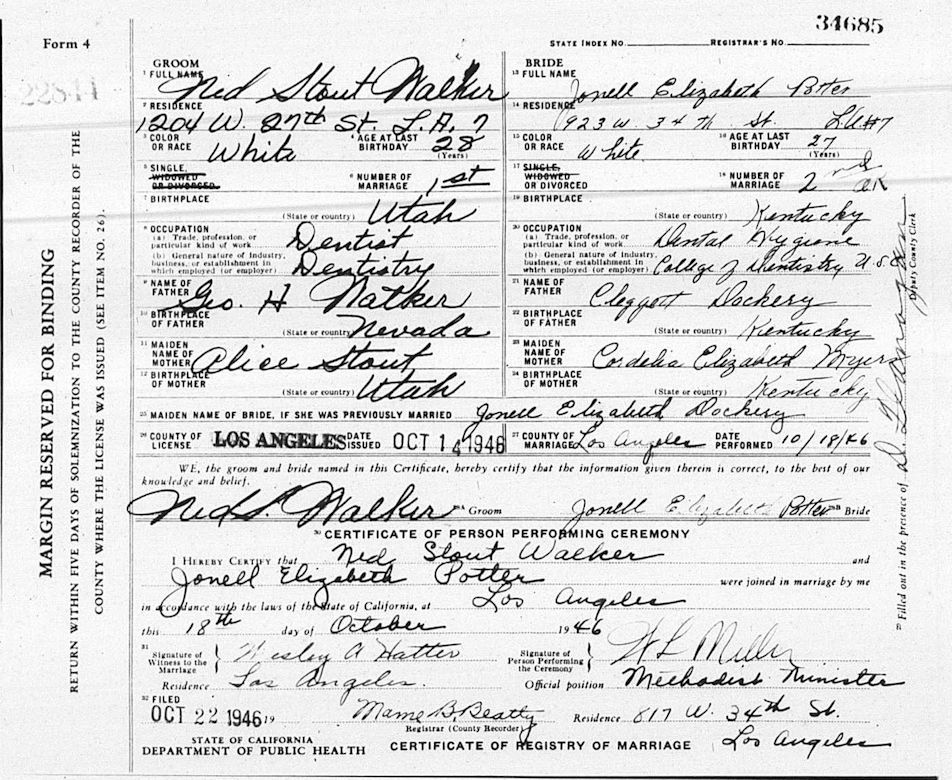 34685
Form 4
STATE INDEX NO. REGISTRAR'S NO.
22844
GROOM
1 FULL NAME Ned Stout Walker
2 RESIDENCE 1204 W. 27th St. L.A. 7
3 COLOR OR RACE White 4 AGE AT LAST BIRTHDAY 28 (Years)
5 SINGLE, WIDOWED OR DIVORCED. 6 NUMBER OF MARRIAGE 1st
7 BIRTHPLACE (State or country) Utah
8 OCCUPATION
(a) Trade, profession, or particular kind of work Dentist
(b) General nature of industry, business, or establishment in which employed (or employer) Dentistry
9 NAME OF FATHER Geo. H Walker
10 BIRTHPLACE OF FATHER (State or country) Nevada
11 MAIDEN NAME OF MOTHER Alice Stout
12 BIRTHPLACE OF MOTHER (State or country) Utah
BRIDE
13 FULL NAME Jonell Elizabeth Potter
14 RESIDENCE 923 W. 34th St. L.A #7
15 COLOR OR RACE White 16 AGE AT LAST BIRTHDAY 27 (Years)
17 SINGLE, WIDOWED OR DIVORCED 18 NUMBER OF MARRIAGE 2nd OK
19 BIRTHPLACE (State or country) Kentucky
20 OCCUPATION
(a) Trade, profession, or particular kind of work Dental Hygiene
(b) General nature of industry, business, or establishment in which employed (or employer) College of Dentistry U.S.C
21 NAME OF FATHER Cleggott Dockery
22 BIRTHPLACE OF FATHER (State or country) Kentucky
23 MAIDEN NAME OF MOTHER Cordelia Elizabeth Myers
24 BIRTHPLACE OF MOTHER (State or country) Kentucky
25 MAIDEN NAME OF BRIDE, IF SHE WAS PREVIOUSLY MARRIED Jonell Elizabeth Dockery
26 COUNTY OF LICENSE LOS ANGELES DATE ISSUED OCT 14 1946 27 COUNTY OF MARRIAGE Los Angeles DATE PERFORMED 10/18/46
WE, the groom and bride named in this Certificate, hereby certify that the information given therein is correct, to the best of our
knowledge and belief.
Ned S. Walker 28A Groom Jonell Elizabeth Potter 28B Bride
30 CERTIFICATE OF PERSON PERFORMING CEREMONY
I HEREBY CERTIFY that Ned Stout Walker and
Jonell Elizabeth Potter were joined in marriage by me
in accordance with the laws of the State of California, at Los Angeles
this 18th day of October 1946
31 Signature of Witness to the Marriage Wesley A Hatter
Signature of Person Performing the Ceremony W L Miller
Residence Los Angeles. Official position Methodist Minister
32 FILED
OCT 22 1946 19 Mame B. Beatty Residence 817 W. 34th St.
Registrar (County Recorder)
STATE OF CALIFORNIA
DEPARTMENT OF PUBLIC HEALTH CERTIFICATE OF REGISTRY OF MARRIAGE Los Angeles
MARGIN RESERVED FOR BINDING
RETURN WITHIN FIVE DAYS OF SOLEMNIZATION TO THE COUNTY RECORDER OF THE
COUNTY WHERE THE LICENSE WAS ISSUED (SEE ITEM NO. 26).
29 Filled out in the presence of
Deputy County Clerk